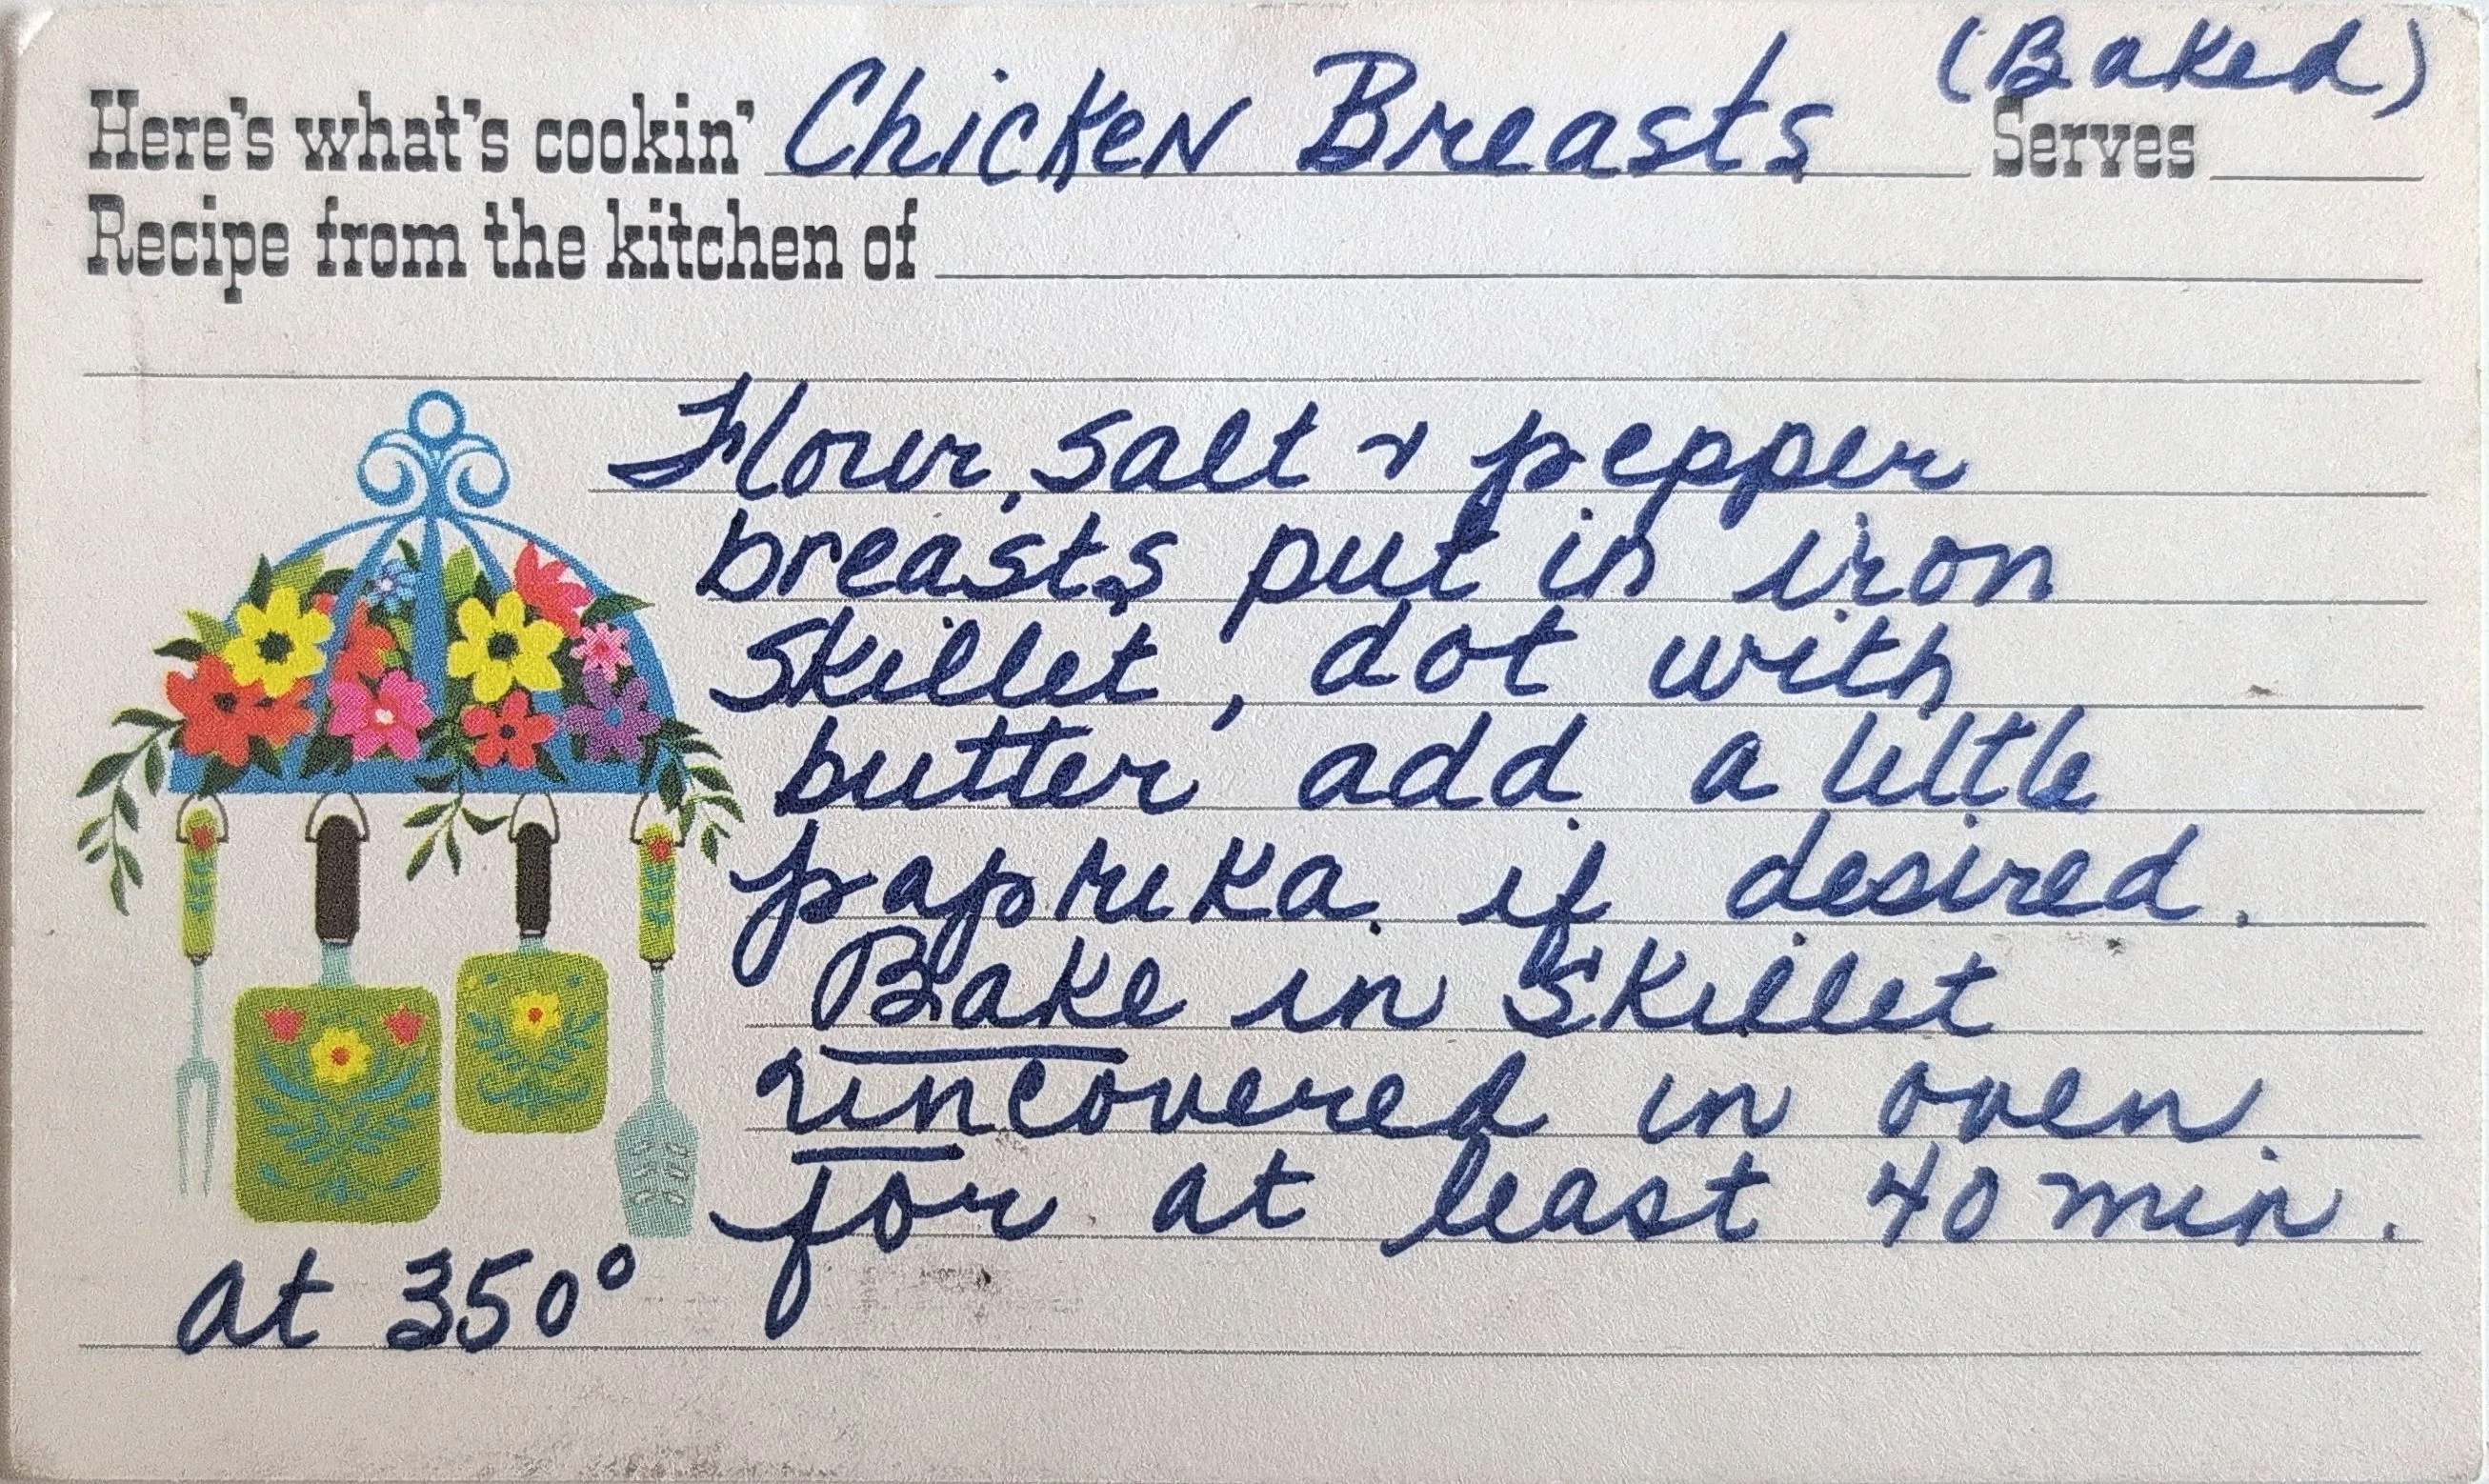 (Baked)
Here's what's cookin' Chicken Breasts Serves
Recipe from the kitchen of
Flour, salt & pepper
breasts put in iron
skillet, dot with
butter, add a little
paprika if desired.
Bake in skillet
uncovered in oven
for at least 40 min.
at 350°